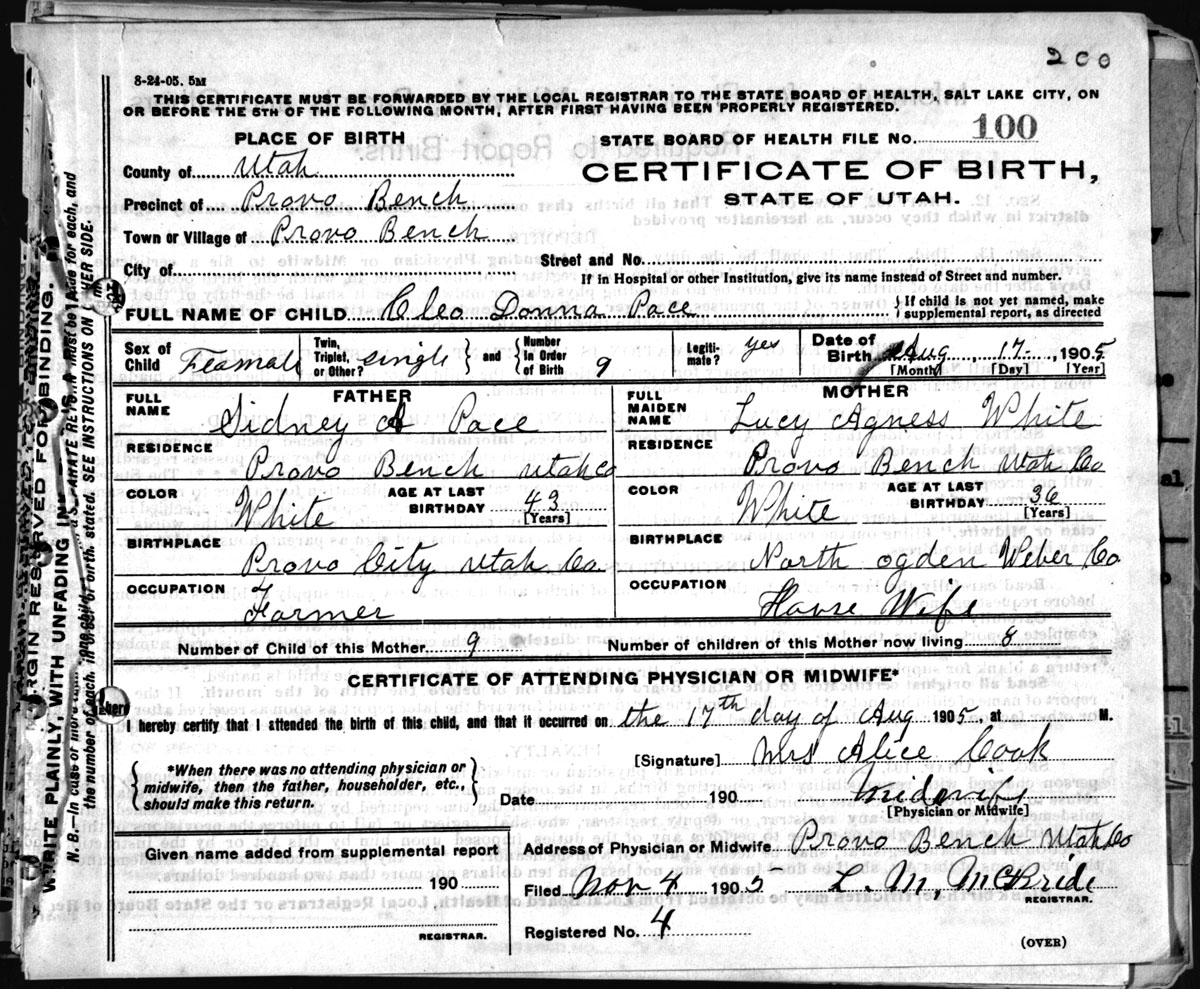 200
8-24-05. 5M
THIS CERTIFICATE MUST BE FORWARDED BY THE LOCAL REGISTRAR TO THE STATE BOARD OF HEALTH, SALT LAKE CITY, ON
OR BEFORE THE 5TH OF THE FOLLOWING MONTH, AFTER FIRST HAVING BEEN PROPERLY REGISTERED.
PLACE OF BIRTH
STATE BOARD OF HEALTH FILE No. 100
County of Utah
CERTIFICATE OF BIRTH,
Precinct of Provo Bench
STATE OF UTAH.
Town or Village of Provo Bench
City of
Street and No.
If in Hospital or other Institution, give its name instead of Street and number.
FULL NAME OF CHILD Cleo Donna Pace
{If child is not yet named, make
supplemental report, as directed
Sex of Child Feamale
Twin, Triplet, or Other? single } and { Number In Order of Birth 9
Legiti-mate? yes
Date of Birth Aug, 17, 1905
[Month] [Day] [Year]
FATHER
FULL NAME Sidney A Pace
RESIDENCE
Provo Bench Utah Co
COLOR White
AGE AT LAST BIRTHDAY 43 [Years]
BIRTHPLACE
Provo City Utah Co
OCCUPATION
Farmer
MOTHER
FULL MAIDEN NAME Lucy Agness White
RESIDENCE
Provo Bench Utah Co
COLOR White
AGE AT LAST BIRTHDAY 36 [Years]
BIRTHPLACE
North ogden Weber Co
OCCUPATION
House Wife
Number of Child of this Mother 9
Number of children of this Mother now living 8
CERTIFICATE OF ATTENDING PHYSICIAN OR MIDWIFE*
I hereby certify that I attended the birth of this child, and that it occurred on the 17th day of Aug 1905, at M.
[Signature] Mrs Alice Cook
{*When there was no attending physician or
midwife, then the father, householder, etc.,
should make this return.}
Date 190 midwife
[Physician or Midwife]
Given name added from supplemental report
190
REGISTRAR.
Address of Physician or Midwife Provo Bench Utah Co
Filed Nov 4 1905 L. M. McBride
REGISTRAR.
Registered No. 4
(OVER)
MARGIN RESERVED FOR BINDING.
WRITE PLAINLY, WITH UNFADING INK
N. B.—In case of more than one child at a birth, a SEPARATE RETURN must be made for each, and
the number of each, in order of birth, stated. SEE INSTRUCTIONS ON OTHER SIDE.